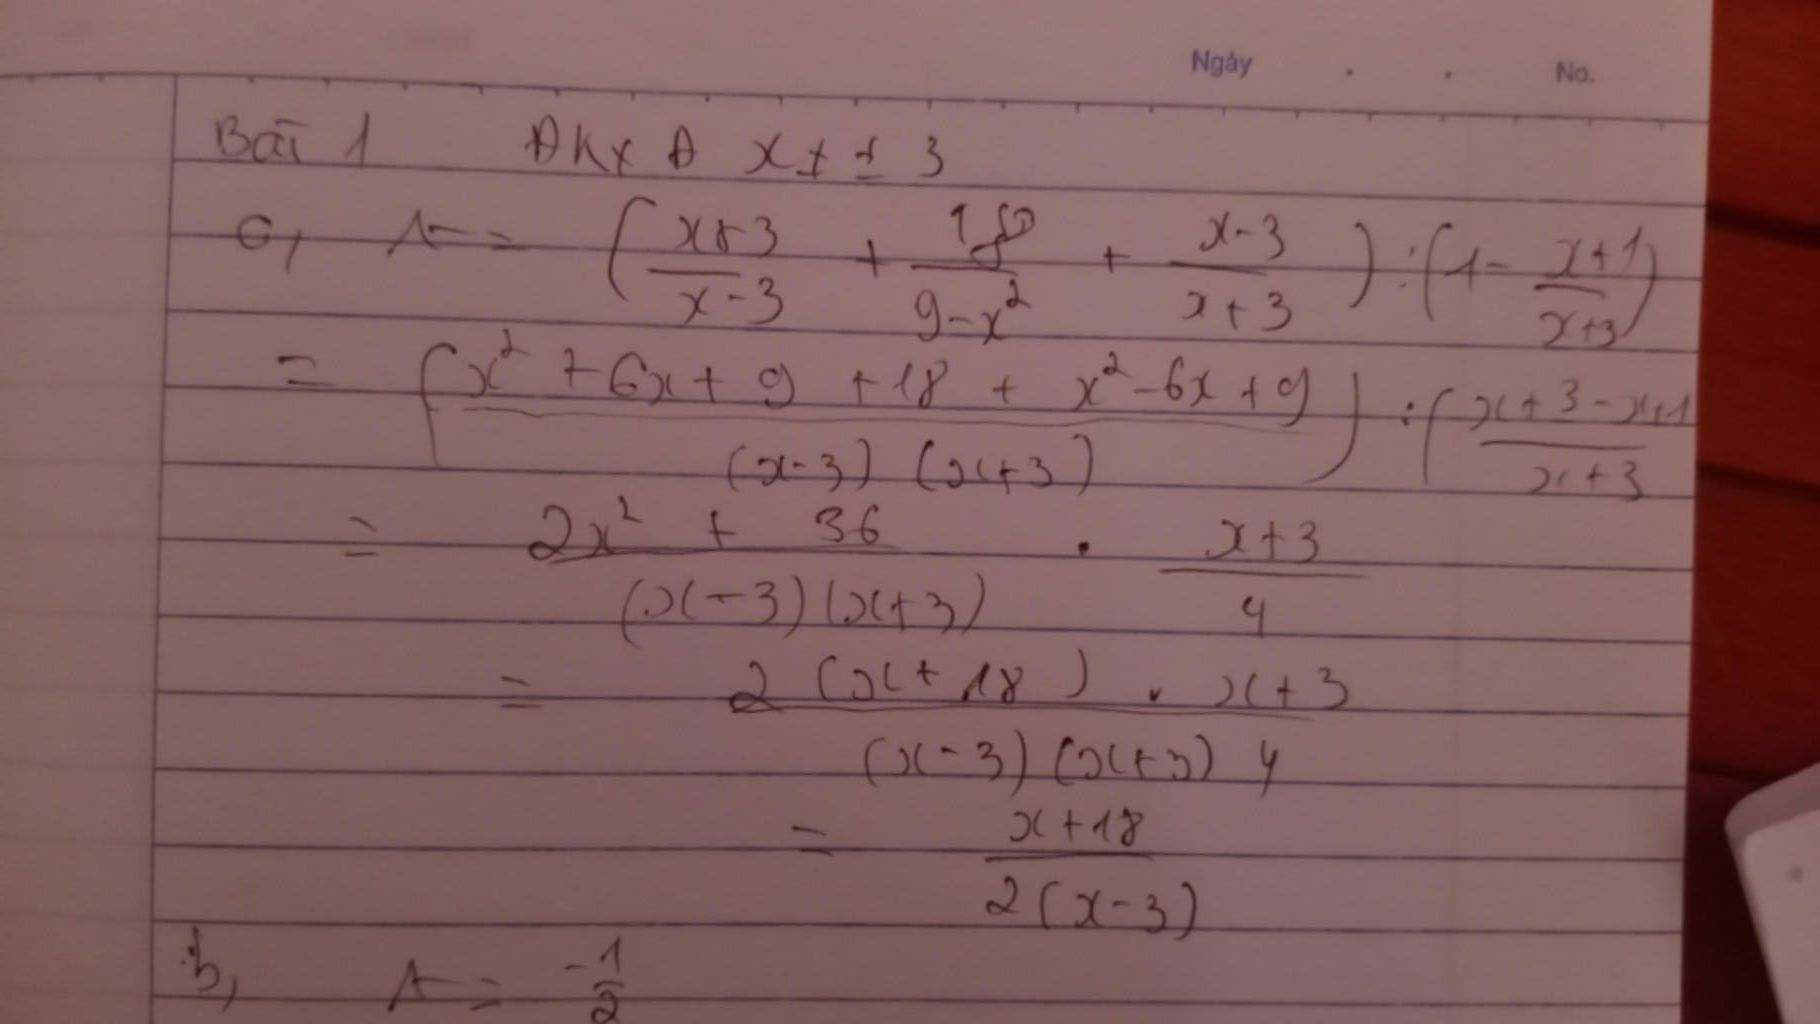 Ngày . . No.
Bài 1 ĐKXĐ x ≠ ± 3
a, A = (x+3/x-3 + 18/9-x² + x-3/x+3) : (1 - x+1/x+3)
= (x² + 6x + 9 + 18 + x² - 6x + 9/(x-3)(x+3)) : (x+3-x+1/x+3)
= 2x² + 36/(x-3)(x+3) . x+3/4
= 2(x+18) . x+3/(x-3)(x+3) 4
= x+18/2(x-3)
b, A = -1/2